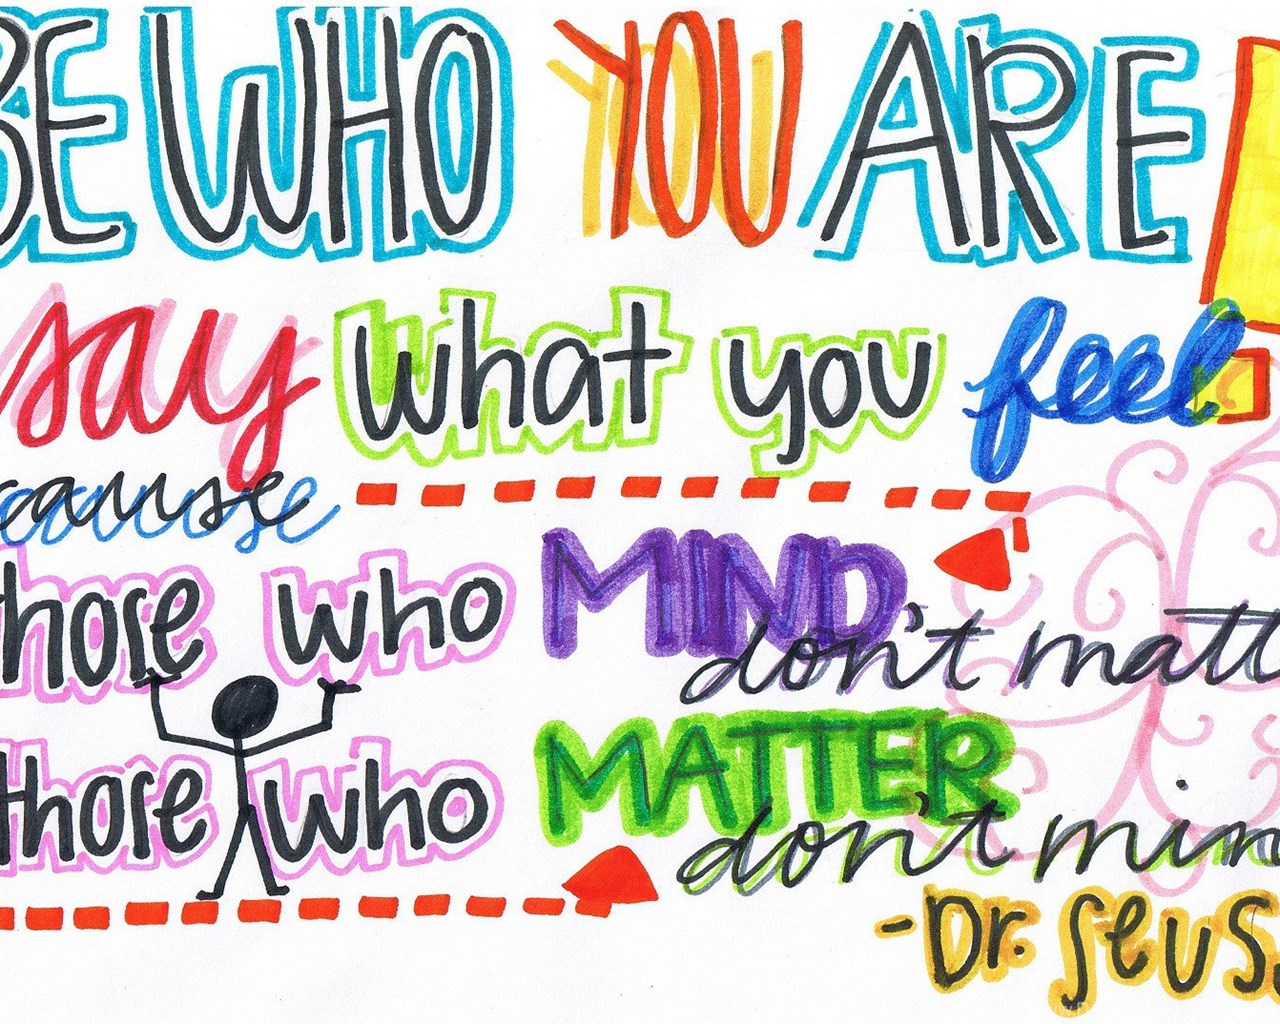 BE WHO YOU ARE
say what you feel
cause
those who MIND
don't matt
those who MATTER
don't min
-Dr. Seuss